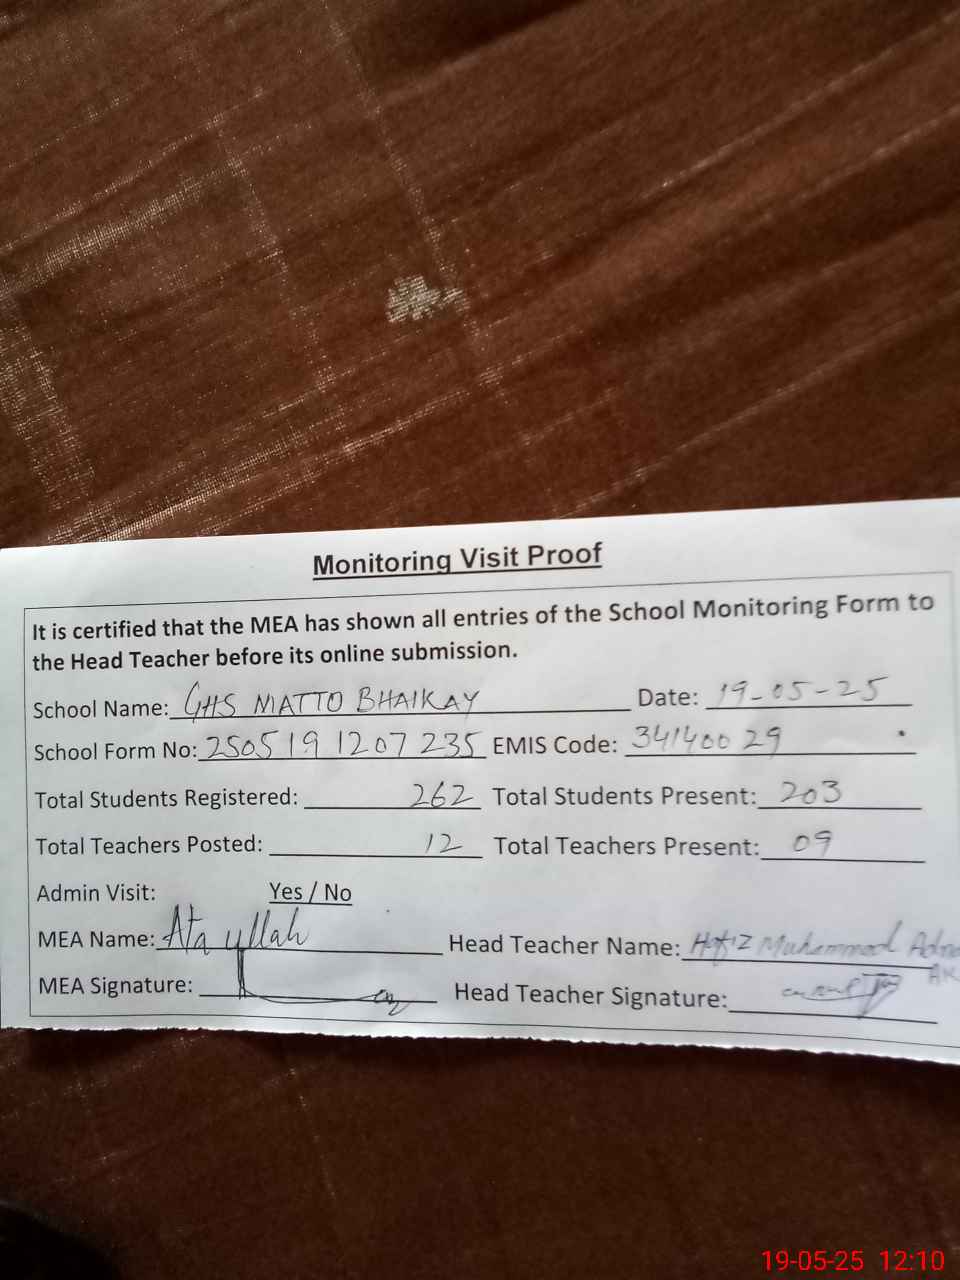 Monitoring Visit Proof
It is certified that the MEA has shown all entries of the School Monitoring Form to
the Head Teacher before its online submission.
School Name: GHS MATTO BHAIKAY Date: 19-05-25
School Form No: 2505191207235 EMIS Code: 34140029
Total Students Registered: 262 Total Students Present: 203
Total Teachers Posted: 12 Total Teachers Present: 09
Admin Visit: Yes / No
MEA Name: Ata ullah Head Teacher Name: Hafiz Muhammad
MEA Signature: Head Teacher Signature:
19-05-25 12:10